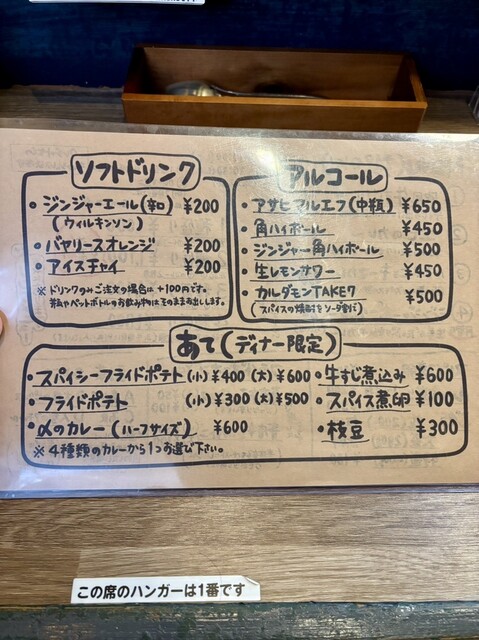 ソフトドリンク
・ジンジャーエール(辛口) ¥200
(ウィルキンソン)
・バヤリースオレンジ ¥200
・アイスチャイ ¥200
※ドリンクのみご注文の場合は+100円です。
瓶やペットボトルのお飲み物はそのままお出しします。
アルコール
・アサヒマルエフ(中瓶) ¥650
・角ハイボール ¥450
・ジンジャー角ハイボール ¥500
・生レモンサワー ¥450
・カルダモンTAKE7 ¥500
(スパイスの焼酎をソーダ割で)
あて(ディナー限定)
・スパイシーフライドポテト(小)¥400 (大)¥600
・フライドポテト (小)¥300 (大)¥500
・αのカレー(ハーフサイズ) ¥600
※4種類のカレーから1つお選び下さい。
・牛すじ煮込み ¥600
・スパイス煮卵 ¥100
・枝豆 ¥300
この席のハンガーは1番です